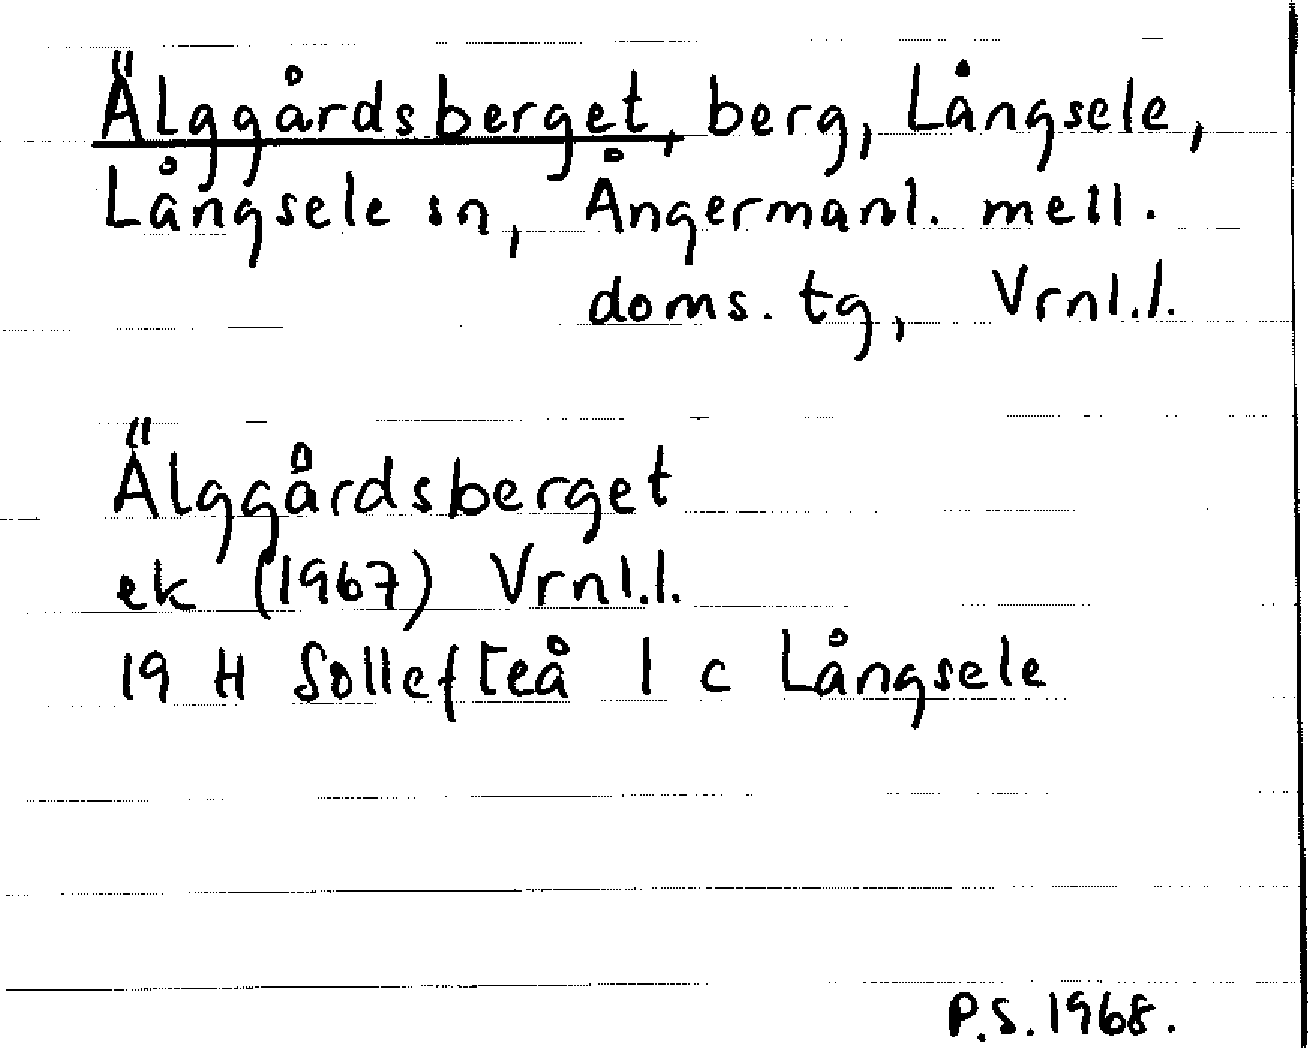 Älggårdsberget, berg, Långsele,
Långsele sn, Ångermanl. mell.
doms. tg, Vrnl.l.
Älggårdsberget
ek (1967) Vrnl.l.
19 H Sollefteå 1 c Långsele
P.S. 1968.